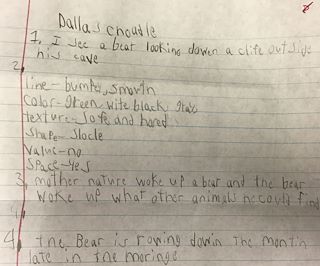 Dallas choatle
1. I see a bear looking dowen a clife outside
his cave
2.
line - bumpy, smowth
color - green wite black gray
texture - Soft and hared
shape -
value - no
space - yes
3. mother nature woke up a bear and the bear
woke up what other animals he could find
4. the. Bear is rowing dowin The montin
late in the moringe